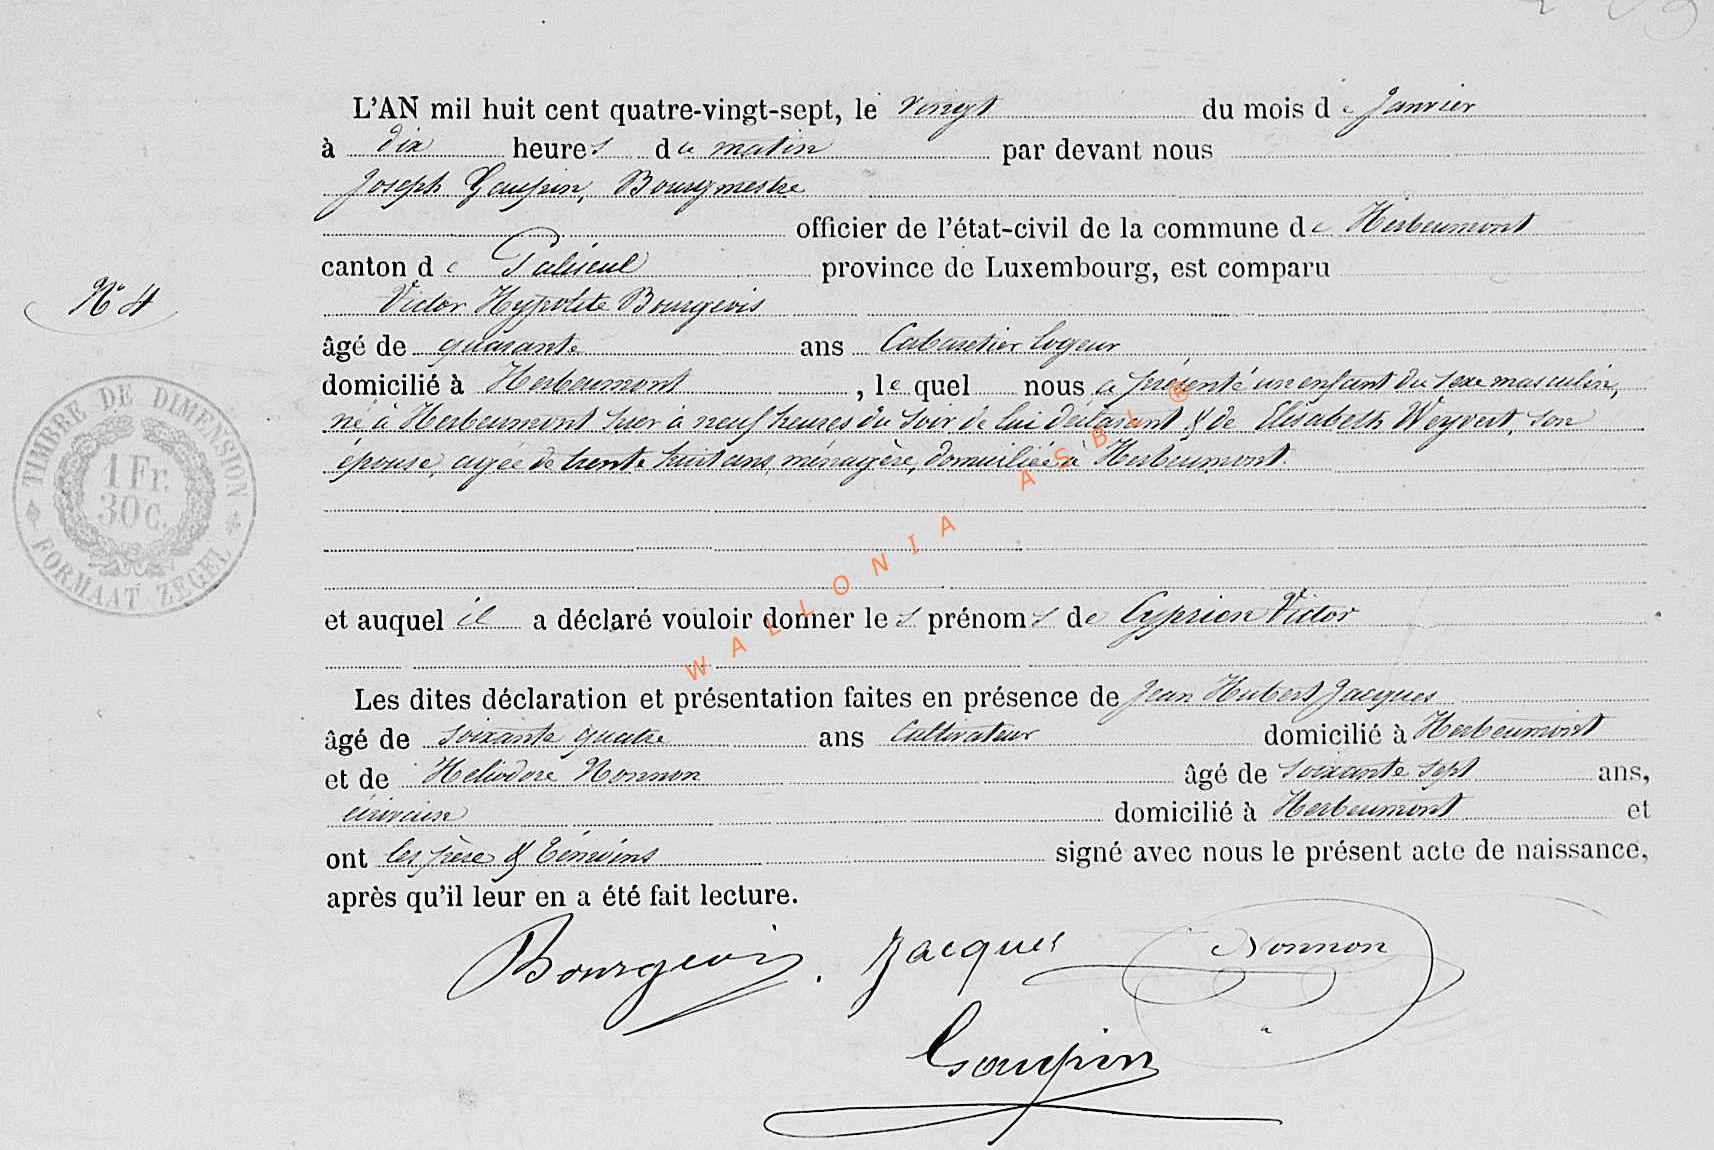 L'AN mil huit cent quatre-vingt-sept, le vingt du mois de Janvier
à dix heures du matin par devant nous
Joseph Gaupin, Bourgmestre
officier de l'état-civil de la commune de Herbeumont
canton de Paliseul province de Luxembourg, est comparu
N° 4
Victor Hypolite Bourgeois
âgé de quarante ans Cabaretier logeur
domicilié à Herbeumont, lequel nous a présenté un enfant du sexe masculin,
né à Herbeumont hier à neuf heures du soir de lui déclarant & de Elisabeth Weyvert, son
épouse, agée de trente huit ans, ménagère, domiciliée à Herbeumont.
TIMBRE DE DIMENSION
1 Fr.
30 C.
FORMAAT ZEGEL
WALLONIA ASBL ®
et auquel il a déclaré vouloir donner les prénoms de Cyprien Victor
Les dites déclaration et présentation faites en présence de Jean Hubert Jacques
âgé de soixante quatre ans Cultivateur domicilié à Herbeumont
et de Heliodore Nonnon âgé de soixante sept ans,
écrivain domicilié à Herbeumont et
ont les père & témoins signé avec nous le présent acte de naissance,
après qu'il leur en a été fait lecture.
Bourgeois. Jacques Nonnon
Gaupin